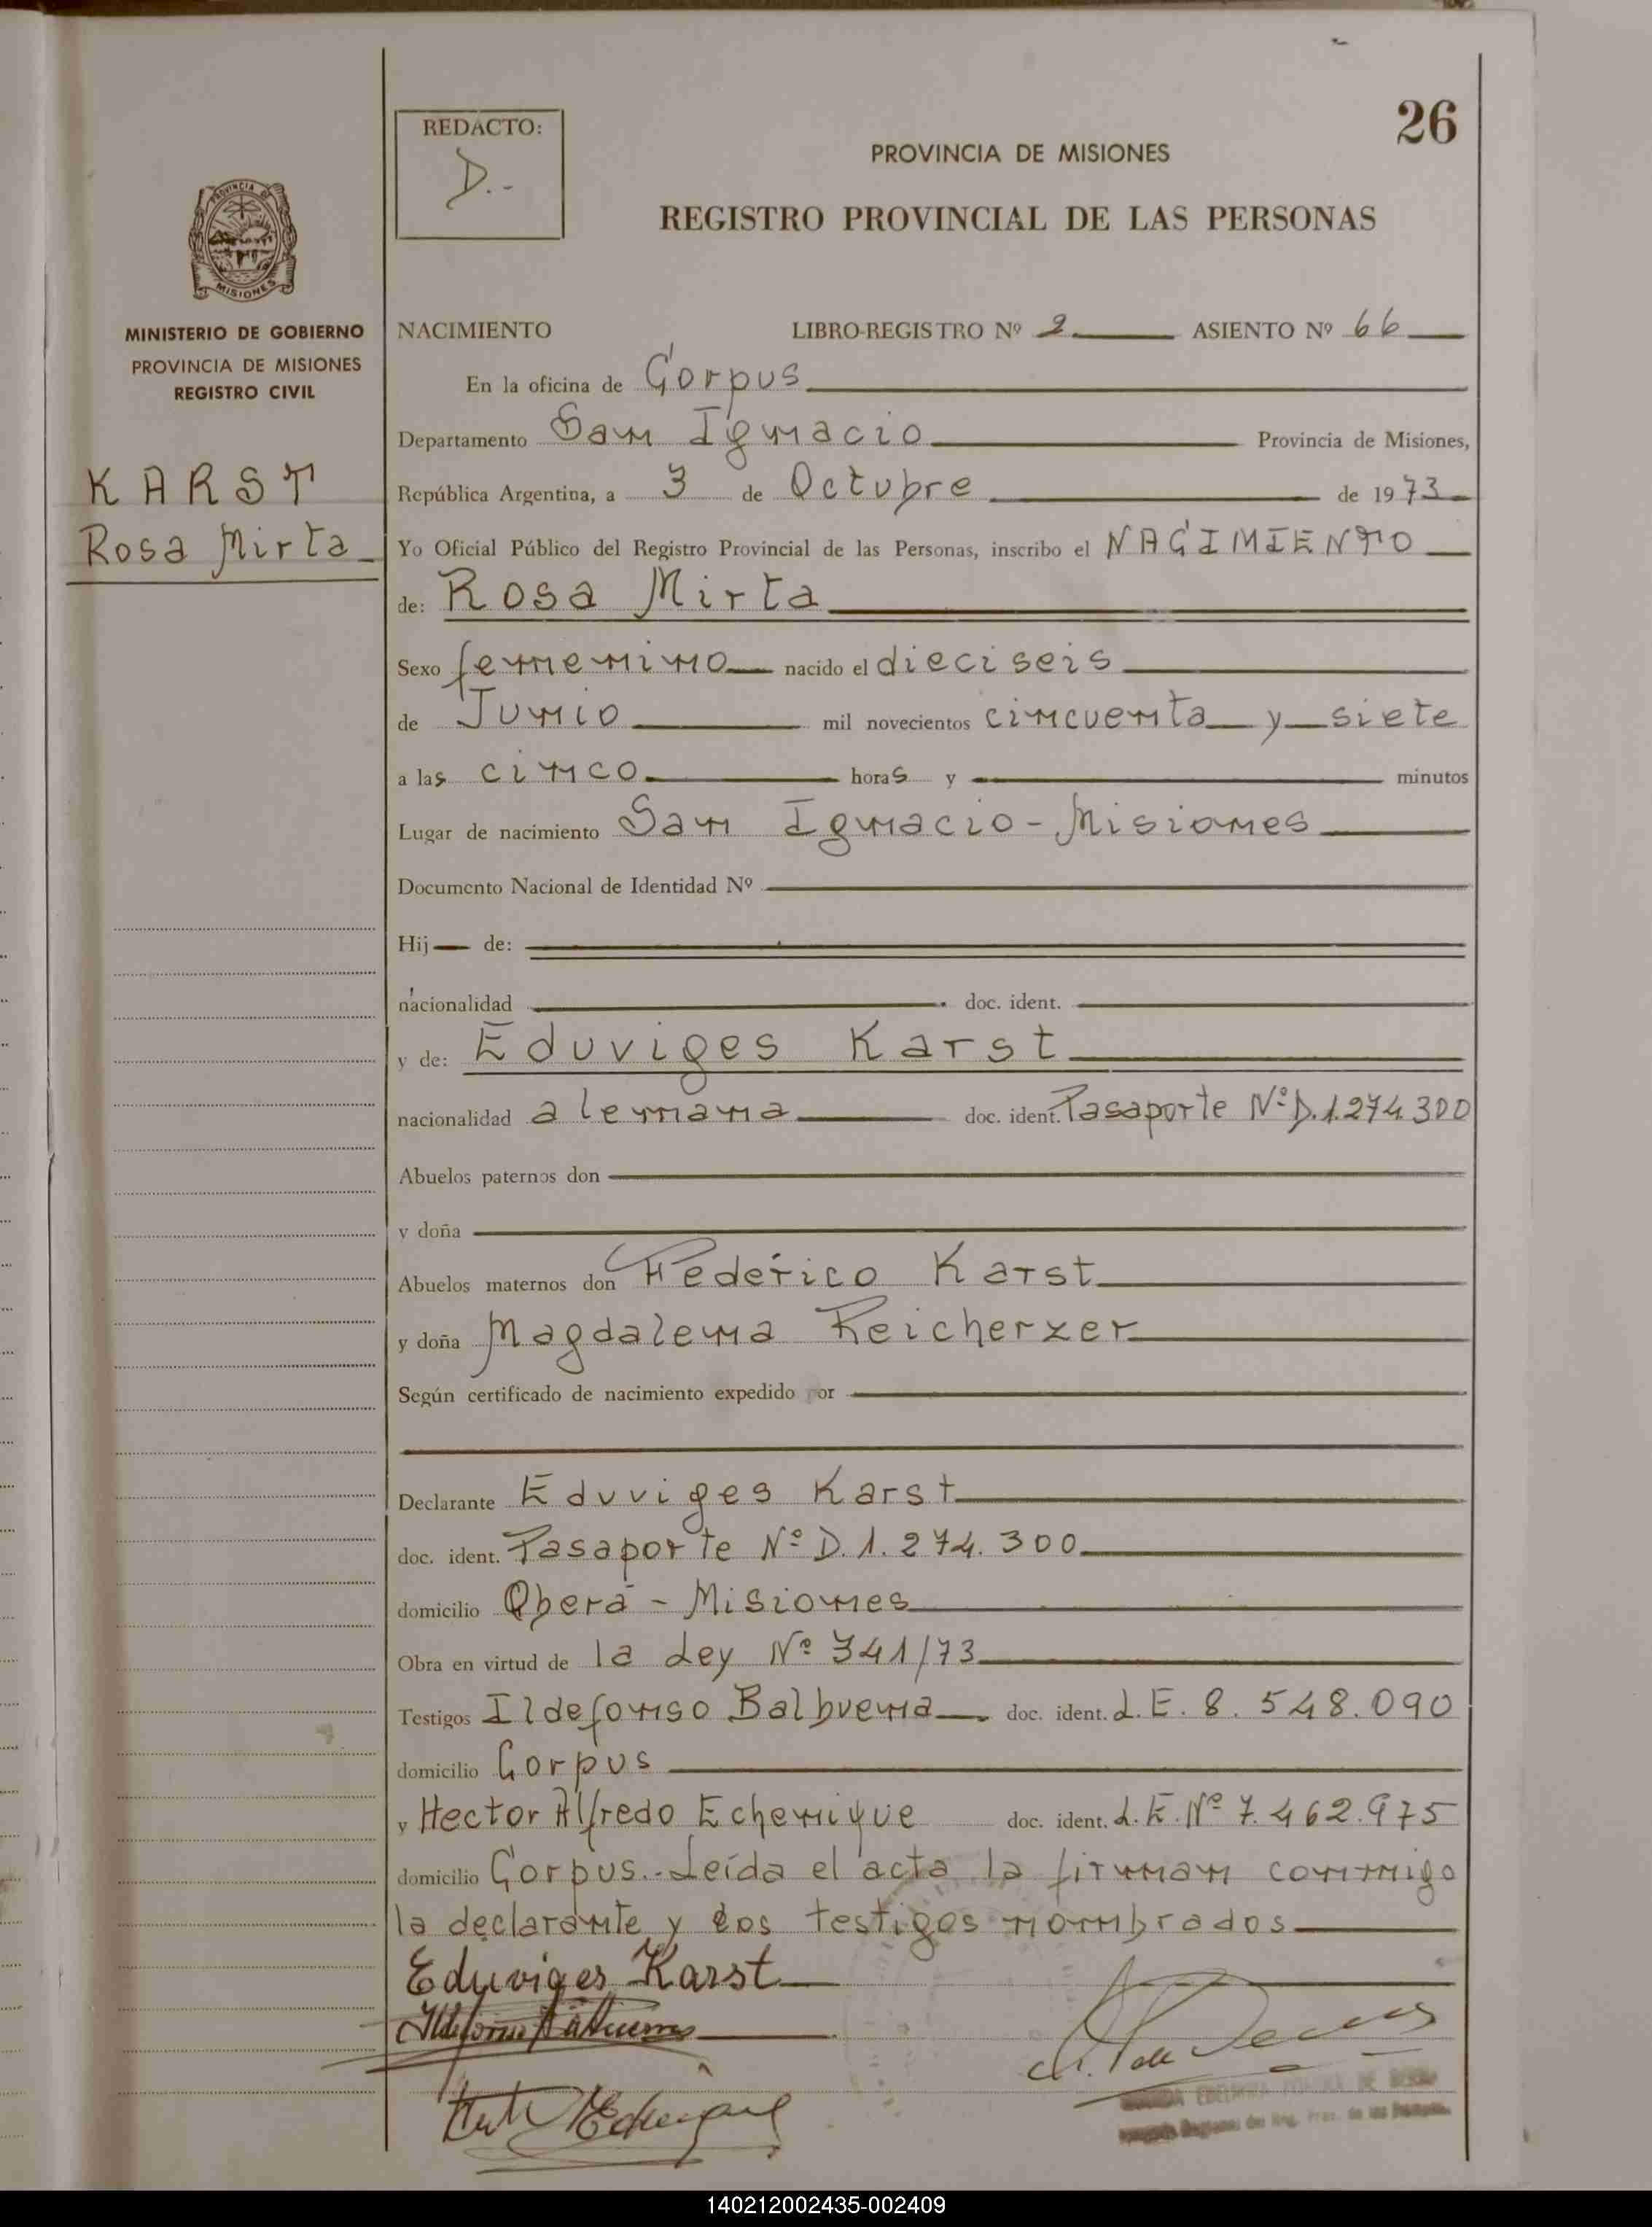 26
REDACTO:
D.-
PROVINCIA DE MISIONES
REGISTRO PROVINCIAL DE LAS PERSONAS
PROVINCIA DE
MISIONES
MINISTERIO DE GOBIERNO
PROVINCIA DE MISIONES
REGISTRO CIVIL
KARST
Rosa Mirta
NACIMIENTO LIBRO-REGISTRO Nº 2 ASIENTO Nº 66
En la oficina de Corpus
Departamento San Ignacio Provincia de Misiones,
República Argentina, a 3 de Octubre de 1973
Yo Oficial Público del Registro Provincial de las Personas, inscribo el NACIMIENTO
de: Rosa Mirta
Sexo femenino nacido el dieciseis
de Junio mil novecientos cincuenta y siete
a las cinco horas y minutos
Lugar de nacimiento San Ignacio - Misiones
Documento Nacional de Identidad Nº
Hij de:
nacionalidad doc. ident.
y de: Eduviges Karst
nacionalidad alemana doc. ident. Pasaporte Nº D.1.274.300
Abuelos paternos don
y doña
Abuelos maternos don Federico Karst
y doña Magdalena Reicherzer
Según certificado de nacimiento expedido por
Declarante Eduviges Karst
doc. ident. Pasaporte Nº D.1.274.300
domicilio Oberá - Misiones
Obra en virtud de la Ley Nº 341/73
Testigos Ildefonso Balbuena doc. ident. L.E. 8.548.090
domicilio Corpus
y Hector Alfredo Echenique doc. ident. L.E. Nº 7.462.975
domicilio Corpus.- Leída el acta la firman conmigo
la declarante y los testigos nombrados
Eduviges Karst
140212002435-002409